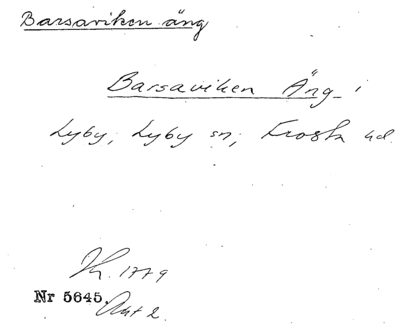 Barsaviken äng
Barsaviken Äng i
Lyby, Lyby sn, Frosta hd.
1779
Nr 5645. Akt 2.